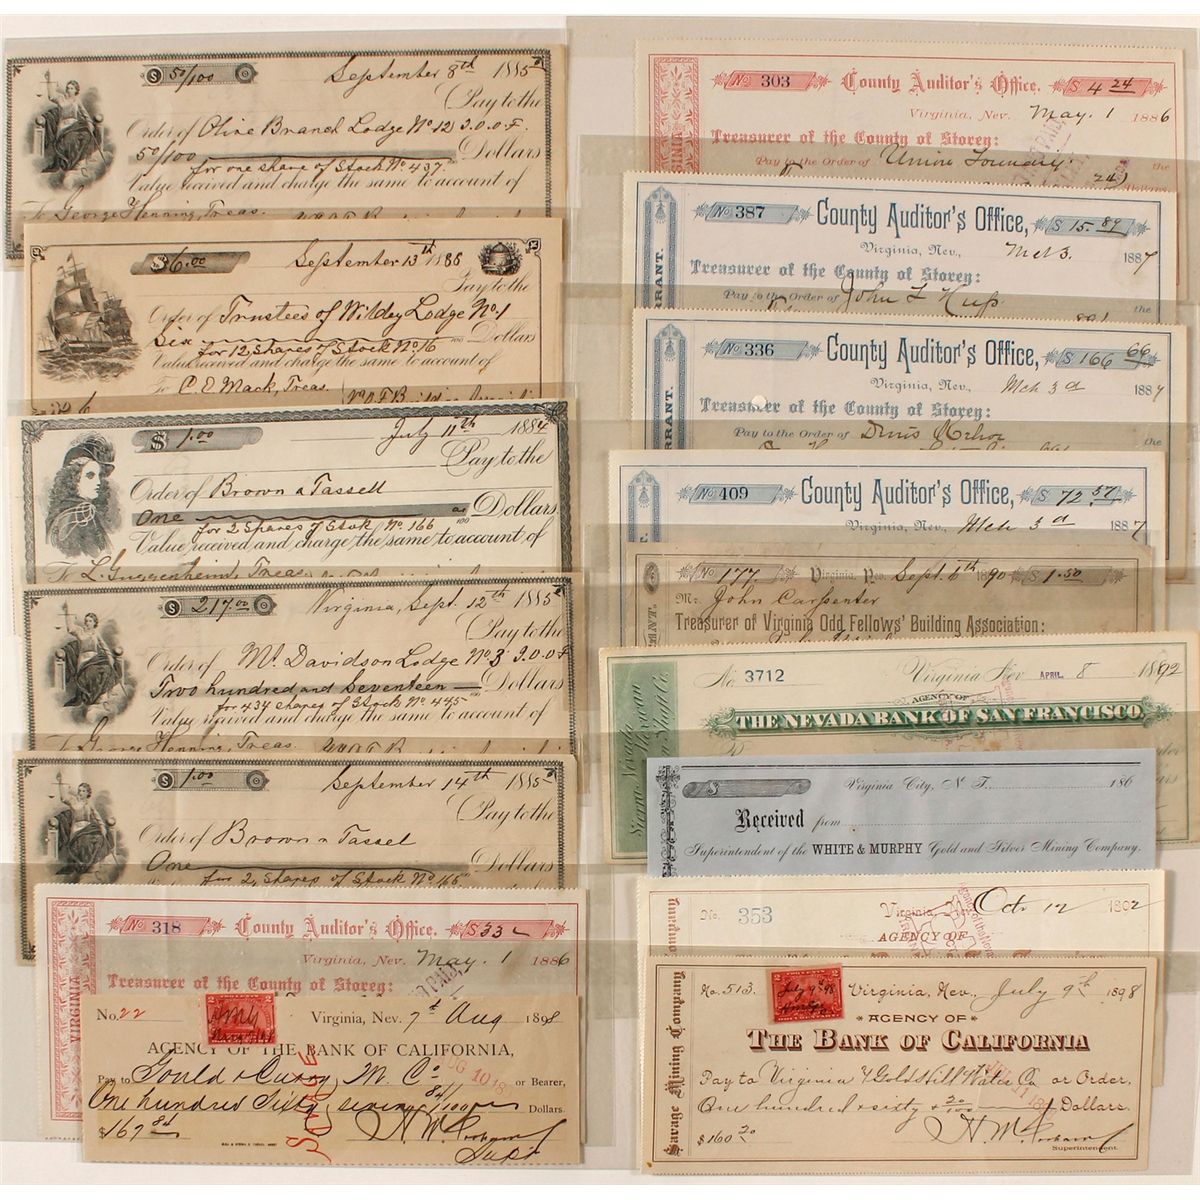 $ 50/100
September 8th 1885
Pay to the
Order of Olive Branch Lodge No. 12 I.O.O.F.
50/100 Dollars
for one share of Stock No. 437
Value received and charge the same to account of
To George Henning, Treas.
$6.00
September 13th 1886
Pay to the
Order of Trustees of Wildey Lodge No. 1
Six Dollars
for 12 Shares of Stock No 16
Value received and charge the same to account of
To C. E. Mack, Treas.
$ 1.00
July 11th 1884
Pay to the
Order of Brown & Tassell
One Dollars
for 2 shares of Stock No. 166
Value received and charge the same to account of
To L. Guggenheim, Treas.
$ 217.00
Virginia, Sept. 12th 1885
Pay to the
Order of Mt. Davidson Lodge No. 3 I.O.O.F
Two hundred and seventeen Dollars
for 434 shares of Stock No. 445
Value received and charge the same to account of
To George Henning, Treas.
$ 1.00
September 14th 1885
Pay to the
Order of Brown & Tassel
One Dollars
for 2 shares of Stock No. 165
No 318 County Auditor's Office.
Virginia, Nev. May. 1 1886
Treasurer of the County of Storey:
VIRGINIA
No. 22
Virginia, Nev. 7th Aug 1898
AGENCY OF THE BANK OF CALIFORNIA,
Pay to Gould & Curry M. Co or Bearer,
One hundred Sixty seven 84/100 Dollars.
$167 84
Supt
No 303 County Auditor's Office. $ 4 24
Virginia, Nev. May. 1 1886
Treasurer of the County of Storey:
Pay to the Order of Union Foundry the
No 387 County Auditor's Office, $ 15.89
Virginia, Nev. Mch 3. 1887
Treasurer of the County of Storey:
Pay to the Order of John L the
RRANT.
No 336 County Auditor's Office, $ 166 66
Virginia, Nev., Mch 3d 1887
Treasurer of the County of Storey:
Pay to the Order of the
RRANT.
No 409 County Auditor's Office, $ 72.57
Virginia, Nev., Mch 3d 1887
No 177 Virginia, Nev. Sept. 6th 1890 $ 1.50
Mr. John Carpenter
Treasurer of Virginia Odd Fellows' Building Association:
No. 3712 Virginia Nev APRIL 8 1892
AGENCY OF
THE NEVADA BANK OF SAN FRANCISCO
Sierra Nevada
$ Virginia City, N. T., 186
Received from
Superintendent of the WHITE & MURPHY Gold and Silver Mining Company.
No. 353 Virginia, Nev. Oct 12 1892
AGENCY OF
No. 513. Virginia, Nev., July 9th 1898
AGENCY OF
THE BANK OF CALIFORNIA
Pay to Virginia & Gold Hill Water Co or Order,
One hundred & sixty & 20/100 Dollars.
$160 20
Superintendent.
Savage Mining Company